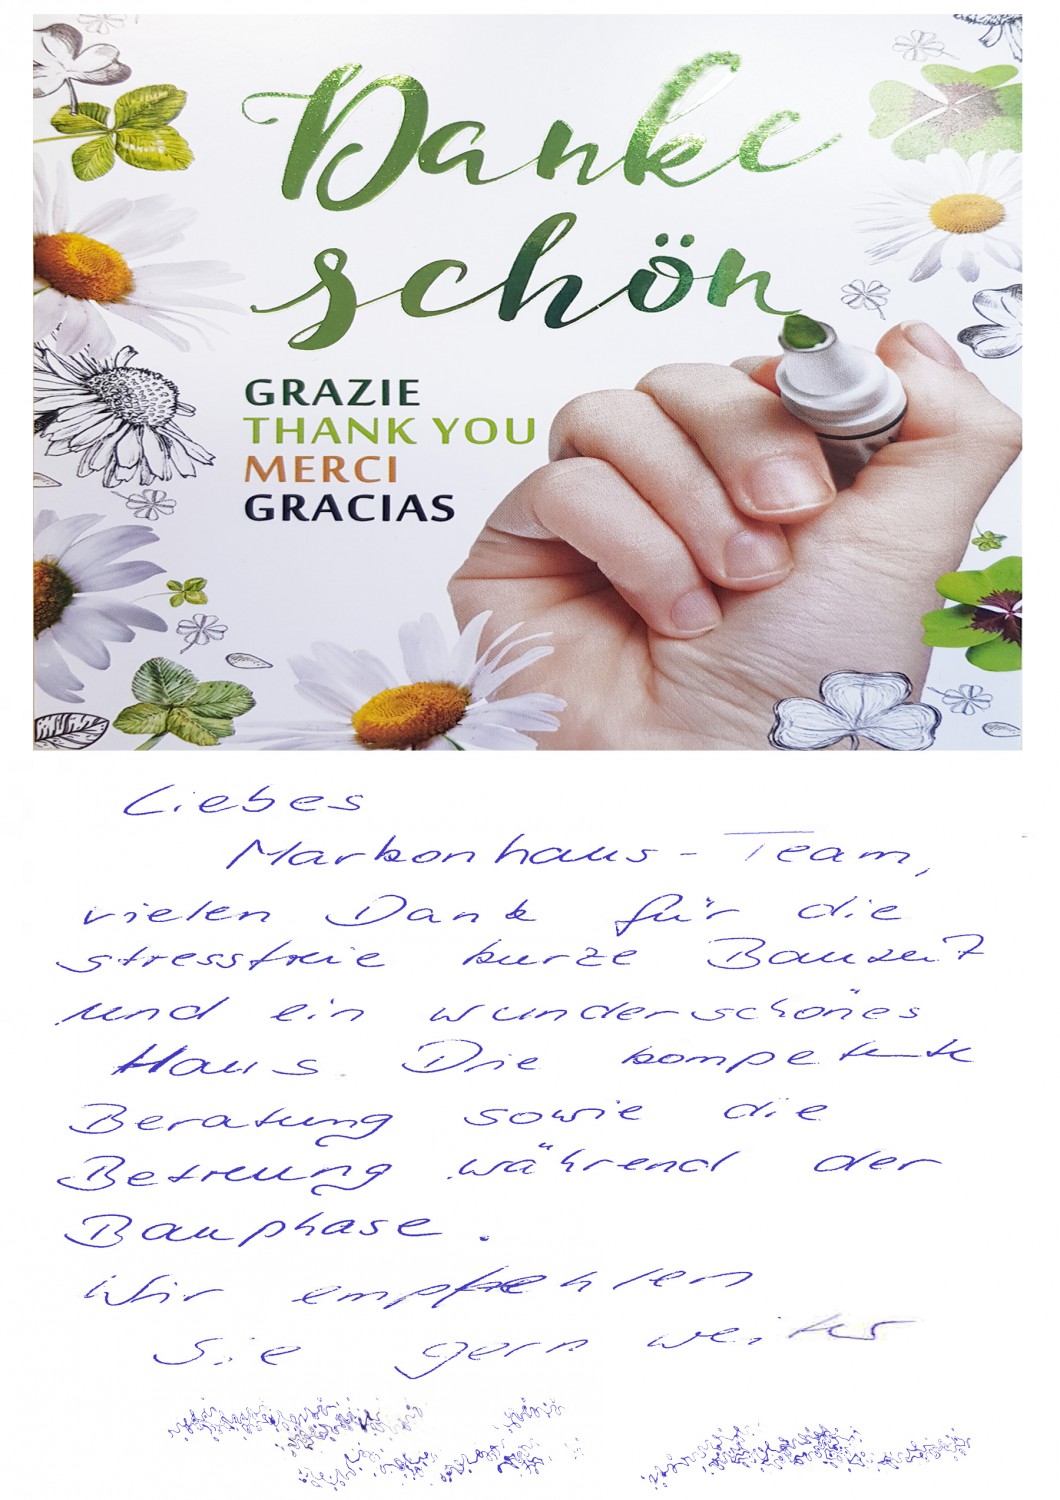 Danke
schön
GRAZIE
THANK YOU
MERCI
GRACIAS
Liebes
Markonhaus-Team,
vielen Dank für die
stressfreie kurze Bauzeit
und ein wunderschönes
Haus. Die kompetente
Beratung sowie die
Betreuung während der
Bauphase.
Wir empfehlen
Sie gern weiter